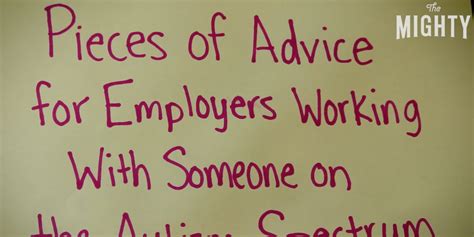 The
MIGHTY
Pieces of Advice
for Employers Working
With Someone on
the Autism Spectrum